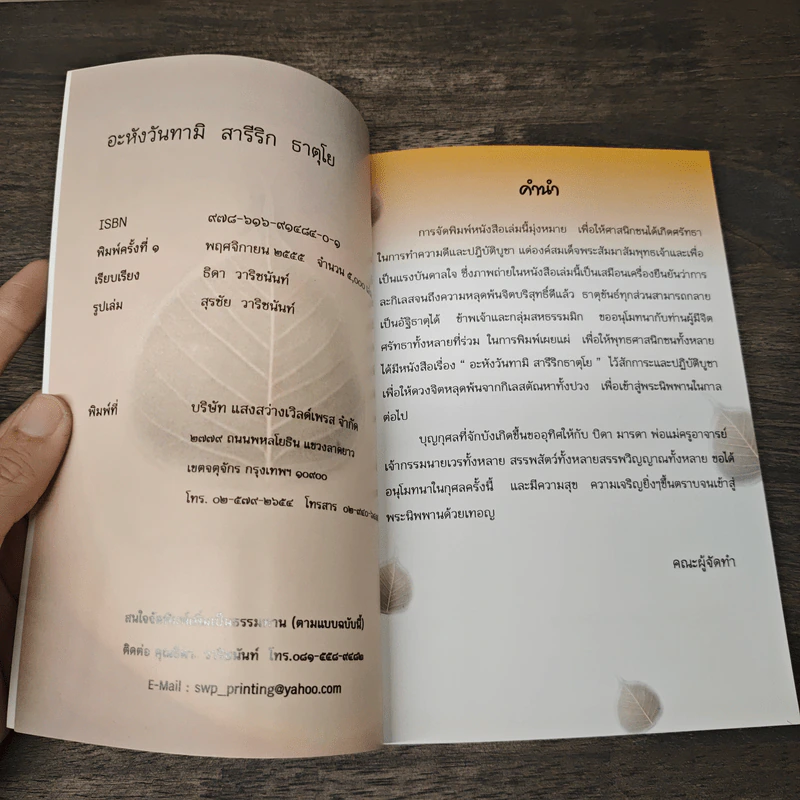 อะหังวันทามิ สารีริก ธาตุโย
ISBN ๙๗๘-๖๑๖-๙๑๔๘๔-๐-๑
พิมพ์ครั้งที่ ๑ พฤศจิกายน ๒๕๕๕ จำนวน ๕,๐๐๐
เรียบเรียง ธิดา วาริชนันท์
รูปเล่ม สุรชัย วาริชนันท์
พิมพ์ที่ บริษัท แสงสว่างเวิลด์เพรส จำกัด
๒๗๗๙ ถนนพหลโยธิน แขวงลาดยาว
เขตจตุจักร กรุงเทพฯ ๑๐๙๐๐
โทร. ๐๒-๕๗๙-๒๖๕๔ โทรสาร
สนใจจัดพิมพ์เพื่อเป็นธรรมทาน (ตามแบบฉบับนี้)
ติดต่อ คุณธิดา วาริชนันท์ โทร.๐๘๑-๕๕๘-๙๔๘๒
E-Mail : swp_printing@yahoo.com
คำนำ
การจัดพิมพ์หนังสือเล่มนี้มุ่งหมาย เพื่อให้ศาสนิกชนได้เกิดศรัทธา
ในการทำความดีและปฏิบัติบูชา แต่องค์สมเด็จพระสัมมาสัมพุทธเจ้าและเพื่อ
เป็นแรงบันดาลใจ ซึ่งภาพถ่ายในหนังสือเล่มนี้เป็นเสมือนเครื่องยืนยันว่าการ
ละกิเลสจนถึงความหลุดพ้นจิตบริสุทธิ์ดีแล้ว ธาตุขันธ์ทุกส่วนสามารถกลาย
เป็นอัฐิธาตุได้ ข้าพเจ้าและกลุ่มสหธรรมมิก ขออนุโมทนากับท่านผู้มีจิต
ศรัทธาทั้งหลายที่ร่วม ในการพิมพ์เผยแผ่ เพื่อให้พุทธศาสนิกชนทั้งหลาย
ได้มีหนังสือเรื่อง “ อะหังวันทามิ สารีริกธาตุโย ” ไว้สักการะและปฏิบัติบูชา
เพื่อให้ดวงจิตหลุดพ้นจากกิเลสตัณหาทั้งปวง เพื่อเข้าสู่พระนิพพานในกาล
ต่อไป
บุญกุศลที่จักบังเกิดขึ้นขออุทิศให้กับ บิดา มารดา พ่อแม่ครูอาจารย์
เจ้ากรรมนายเวรทั้งหลาย สรรพสัตว์ทั้งหลายสรรพวิญญาณทั้งหลาย ขอได้
อนุโมทนาในกุศลครั้งนี้ และมีความสุข ความเจริญยิ่งๆขึ้นตราบจนเข้าสู่
พระนิพพานด้วยเทอญ
คณะผู้จัดทำ